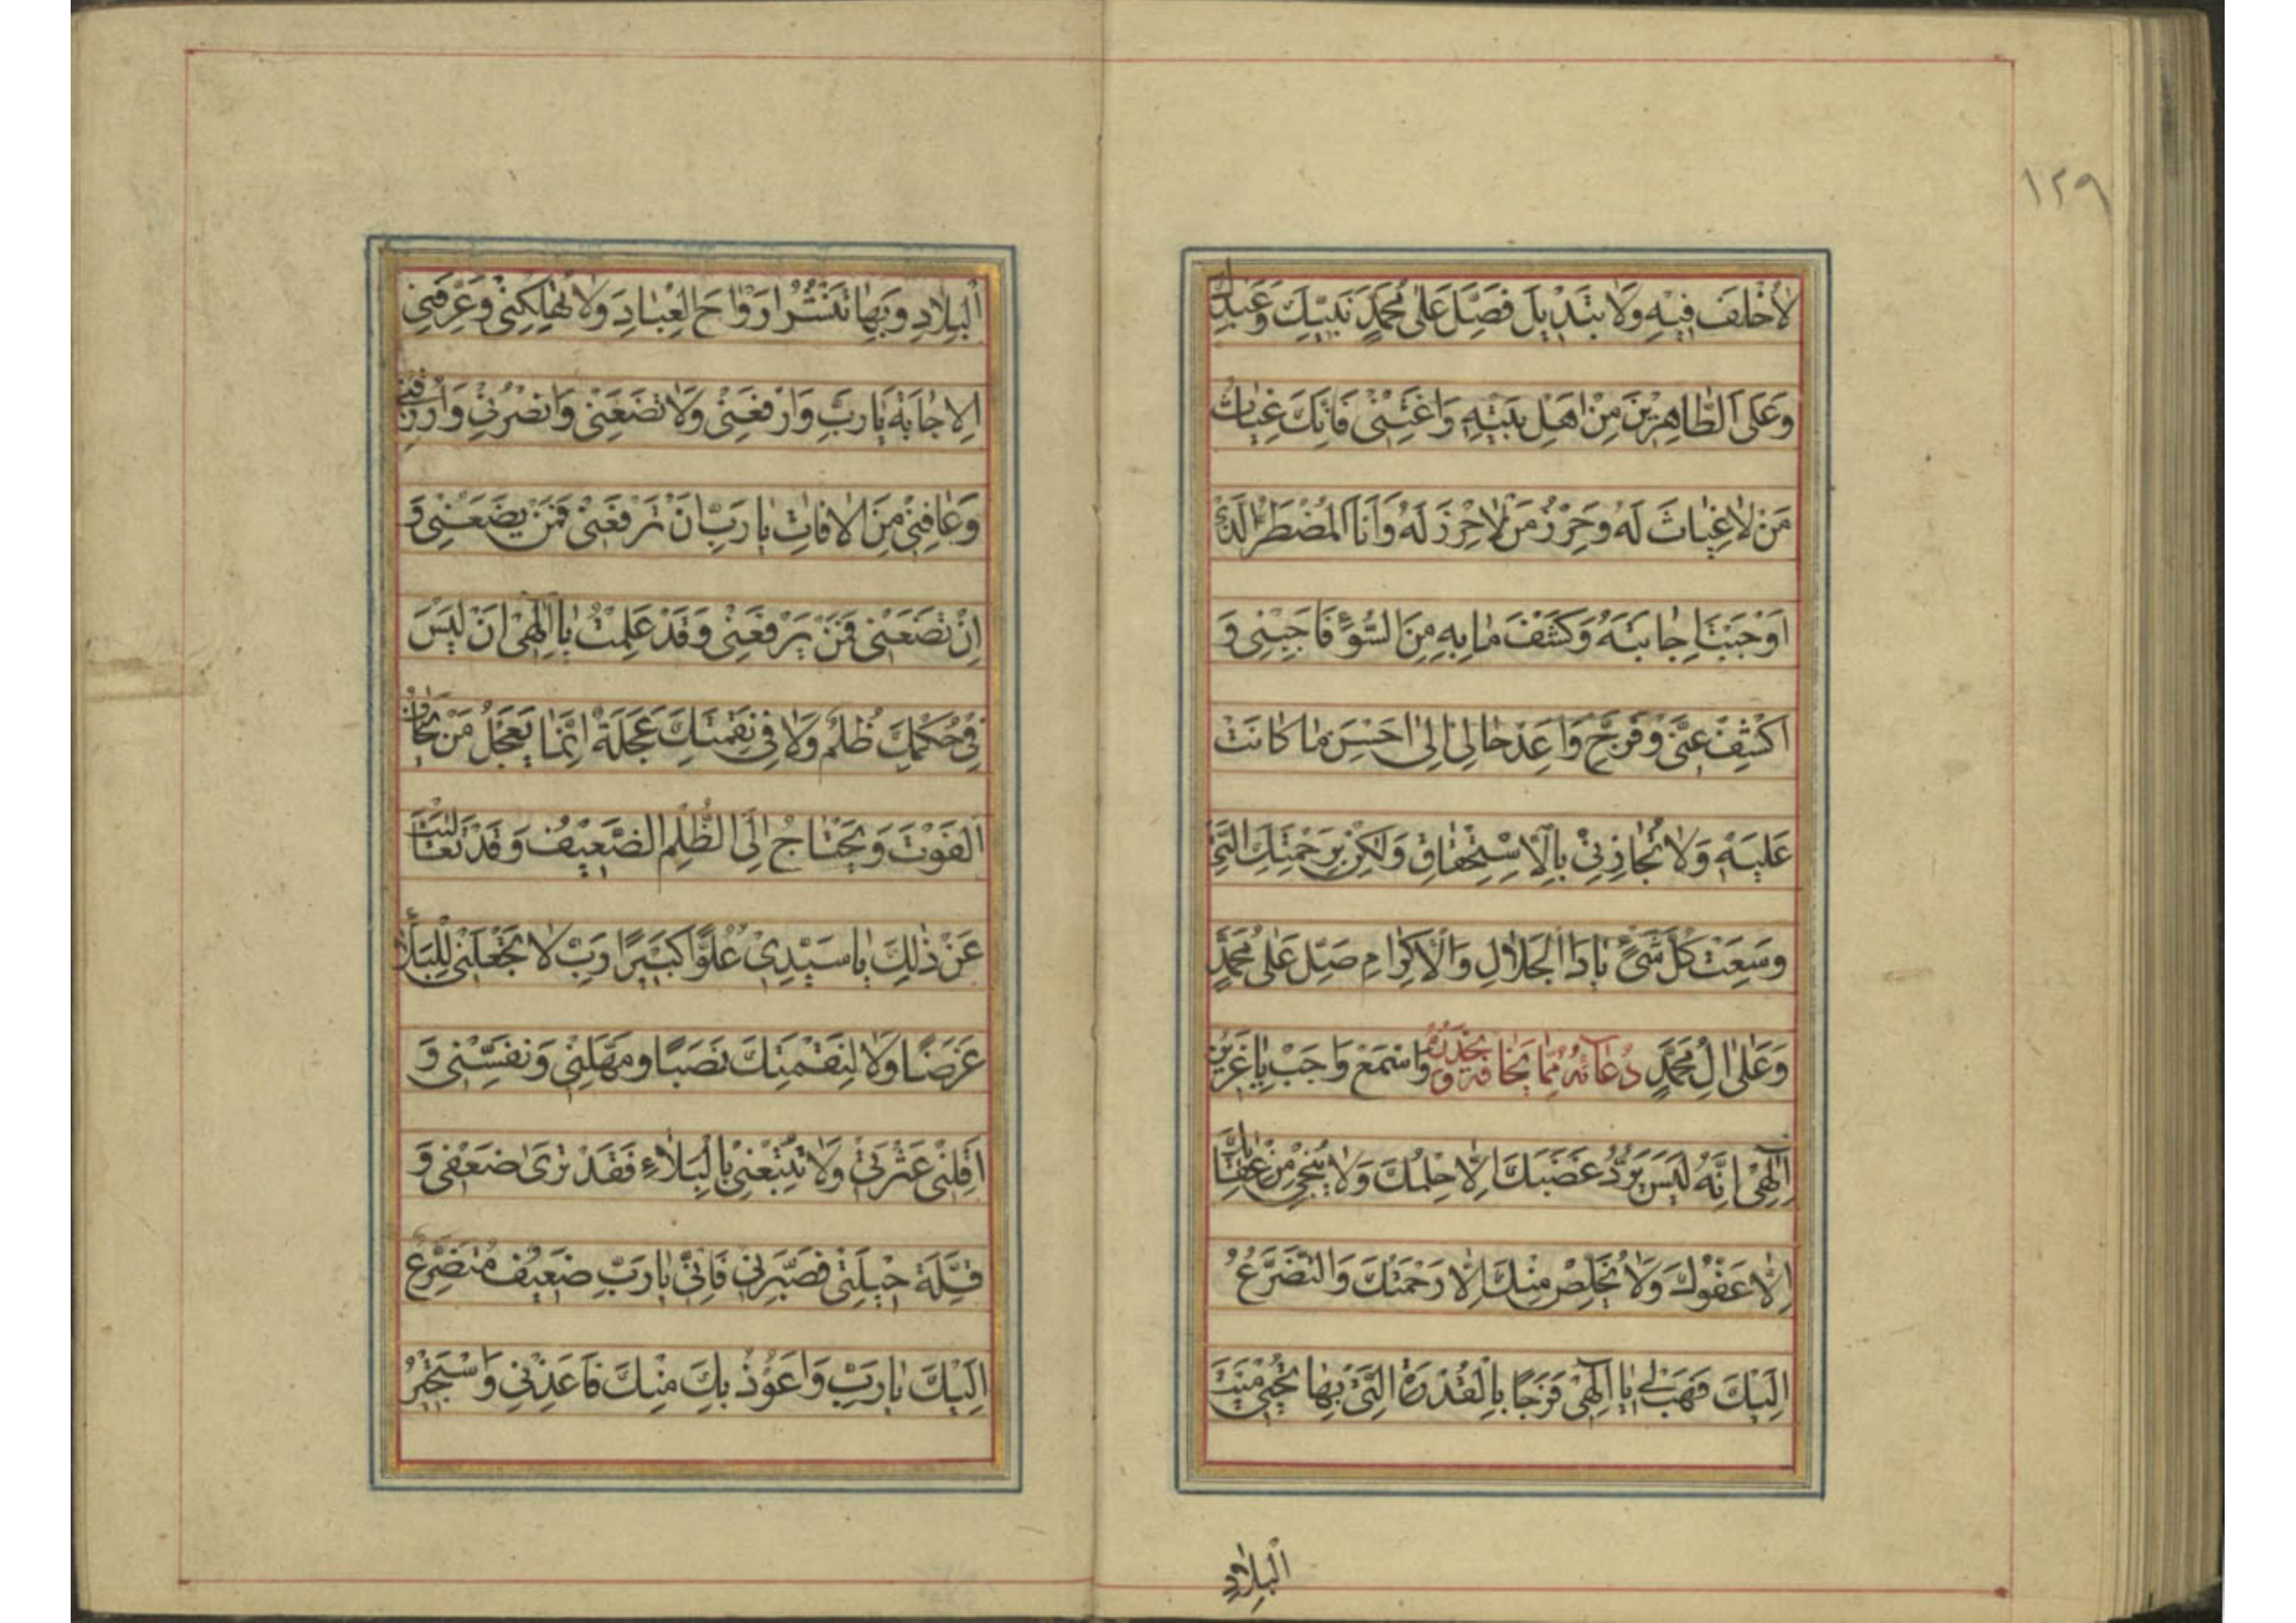 ١٢٩
لَا خُلْفَ فِيهِ وَلَا تَبْدِيلَ فَصَلِّ عَلَى مُحَمَّدٍ نَبِيِّكَ وَعَبْدِكَ
وَعَلَى الطَّاهِرِينَ مِنْ اَهْلِ بَيْتِهِ وَاَغِثْنِي فَاِنَّكَ غِيَاثُ
مَنْ لَا غِيَاثَ لَهُ وَحِرْزُ مَنْ لَا حِرْزَ لَهُ وَاَنَا الْمُضْطَرُّ الَّذِي
اَوْجَبْتَ اِجَابَتَهُ وَكَشْفَ مَا بِهِ مِنَ السُّوءِ فَاَجِبْنِي وَ
اكْشِفْ عَنِّي وَفَرِّجْ وَاَعِدْ حَالِي اِلَى اَحْسَنِ مَا كَانَتْ
عَلَيْهِ وَلَا تُجَازِنِي بِالْاِسْتِحْقَاقِ وَلَكِنْ بِرَحْمَتِكَ الَّتِي
وَسِعَتْ كُلَّ شَيْءٍ يَا ذَا الْجَلَالِ وَالْاِكْرَامِ صَلِّ عَلَى مُحَمَّدٍ
وَعَلَى الِ مُحَمَّدٍ دُعَائُهُ مِمَّا يَخَافُهُ وَيَحْذَرُهُ وَاسْمَعْ وَاَجِبْ يَا عَزِيزُ
اِلٰهِي اِنَّهُ لَيْسَ يَرُدُّ غَضَبَكَ اِلَّا حِلْمُكَ وَلَا يُنْجِي مِنْ عِقَابِكَ
اِلَّا عَفْوُكَ وَلَا يُخَلِّصُ مِنْكَ اِلَّا رَحْمَتُكَ وَالتَّضَرُّعُ
اِلَيْكَ فَهَبْ لِي يَا اِلٰهِي فَرَجًا بِالْقُدْرَةِ الَّتِي بِهَا تُحْيِي مَيْتَ
الْبِلَادِ
الْبِلَادِ وَبِهَا تَنْشُرُ اَرْوَاحَ الْعِبَادِ وَلَا تُهْلِكْنِي وَعَرِّفْنِي
الْاِجَابَةَ يَا رَبِّ وَارْفَعْنِي وَلَا تَضَعْنِي وَانْصُرْنِي وَارْزُقْنِي
وَعَافِنِي مِنَ الْافَاتِ يَا رَبِّ اِنْ تَرْفَعْنِي فَمَنْ يَضَعُنِي وَ
اِنْ تَضَعْنِي فَمَنْ يَرْفَعُنِي وَقَدْ عَلِمْتُ يَا اِلٰهِي اَنْ لَيْسَ
فِي حُكْمِكَ ظُلْمٌ وَلَا فِي نِقْمَتِكَ عَجَلَةٌ اِنَّمَا يَعْجَلُ مَنْ يَخَافُ
الْفَوْتَ وَيَحْتَاجُ اِلَى الظُّلْمِ الضَّعِيفُ وَقَدْ تَعَالَيْتَ
عَنْ ذٰلِكَ يَا سَيِّدِي عُلُوًّا كَبِيرًا رَبِّ لَا تَجْعَلْنِي لِلْبَلَاءِ
غَرَضًا وَلَا لِنَقِمَتِكَ نَصَبًا وَمَهِّلْنِي وَنَفِّسْنِي وَ
اَقِلْنِي عَثْرَتِي وَلَا تُتْبِعْنِي بِالْبَلَاءِ فَقَدْ تَرَى ضَعْفِي وَ
قِلَّةَ حِيلَتِي فَصَبِّرْنِي فَاِنِّي يَا رَبِّ ضَعِيفٌ مُتَضَرِّعٌ
اِلَيْكَ يَا رَبِّ وَاَعُوذُ بِكَ مِنْكَ فَاَعِذْنِي وَاَسْتَجِيرُ